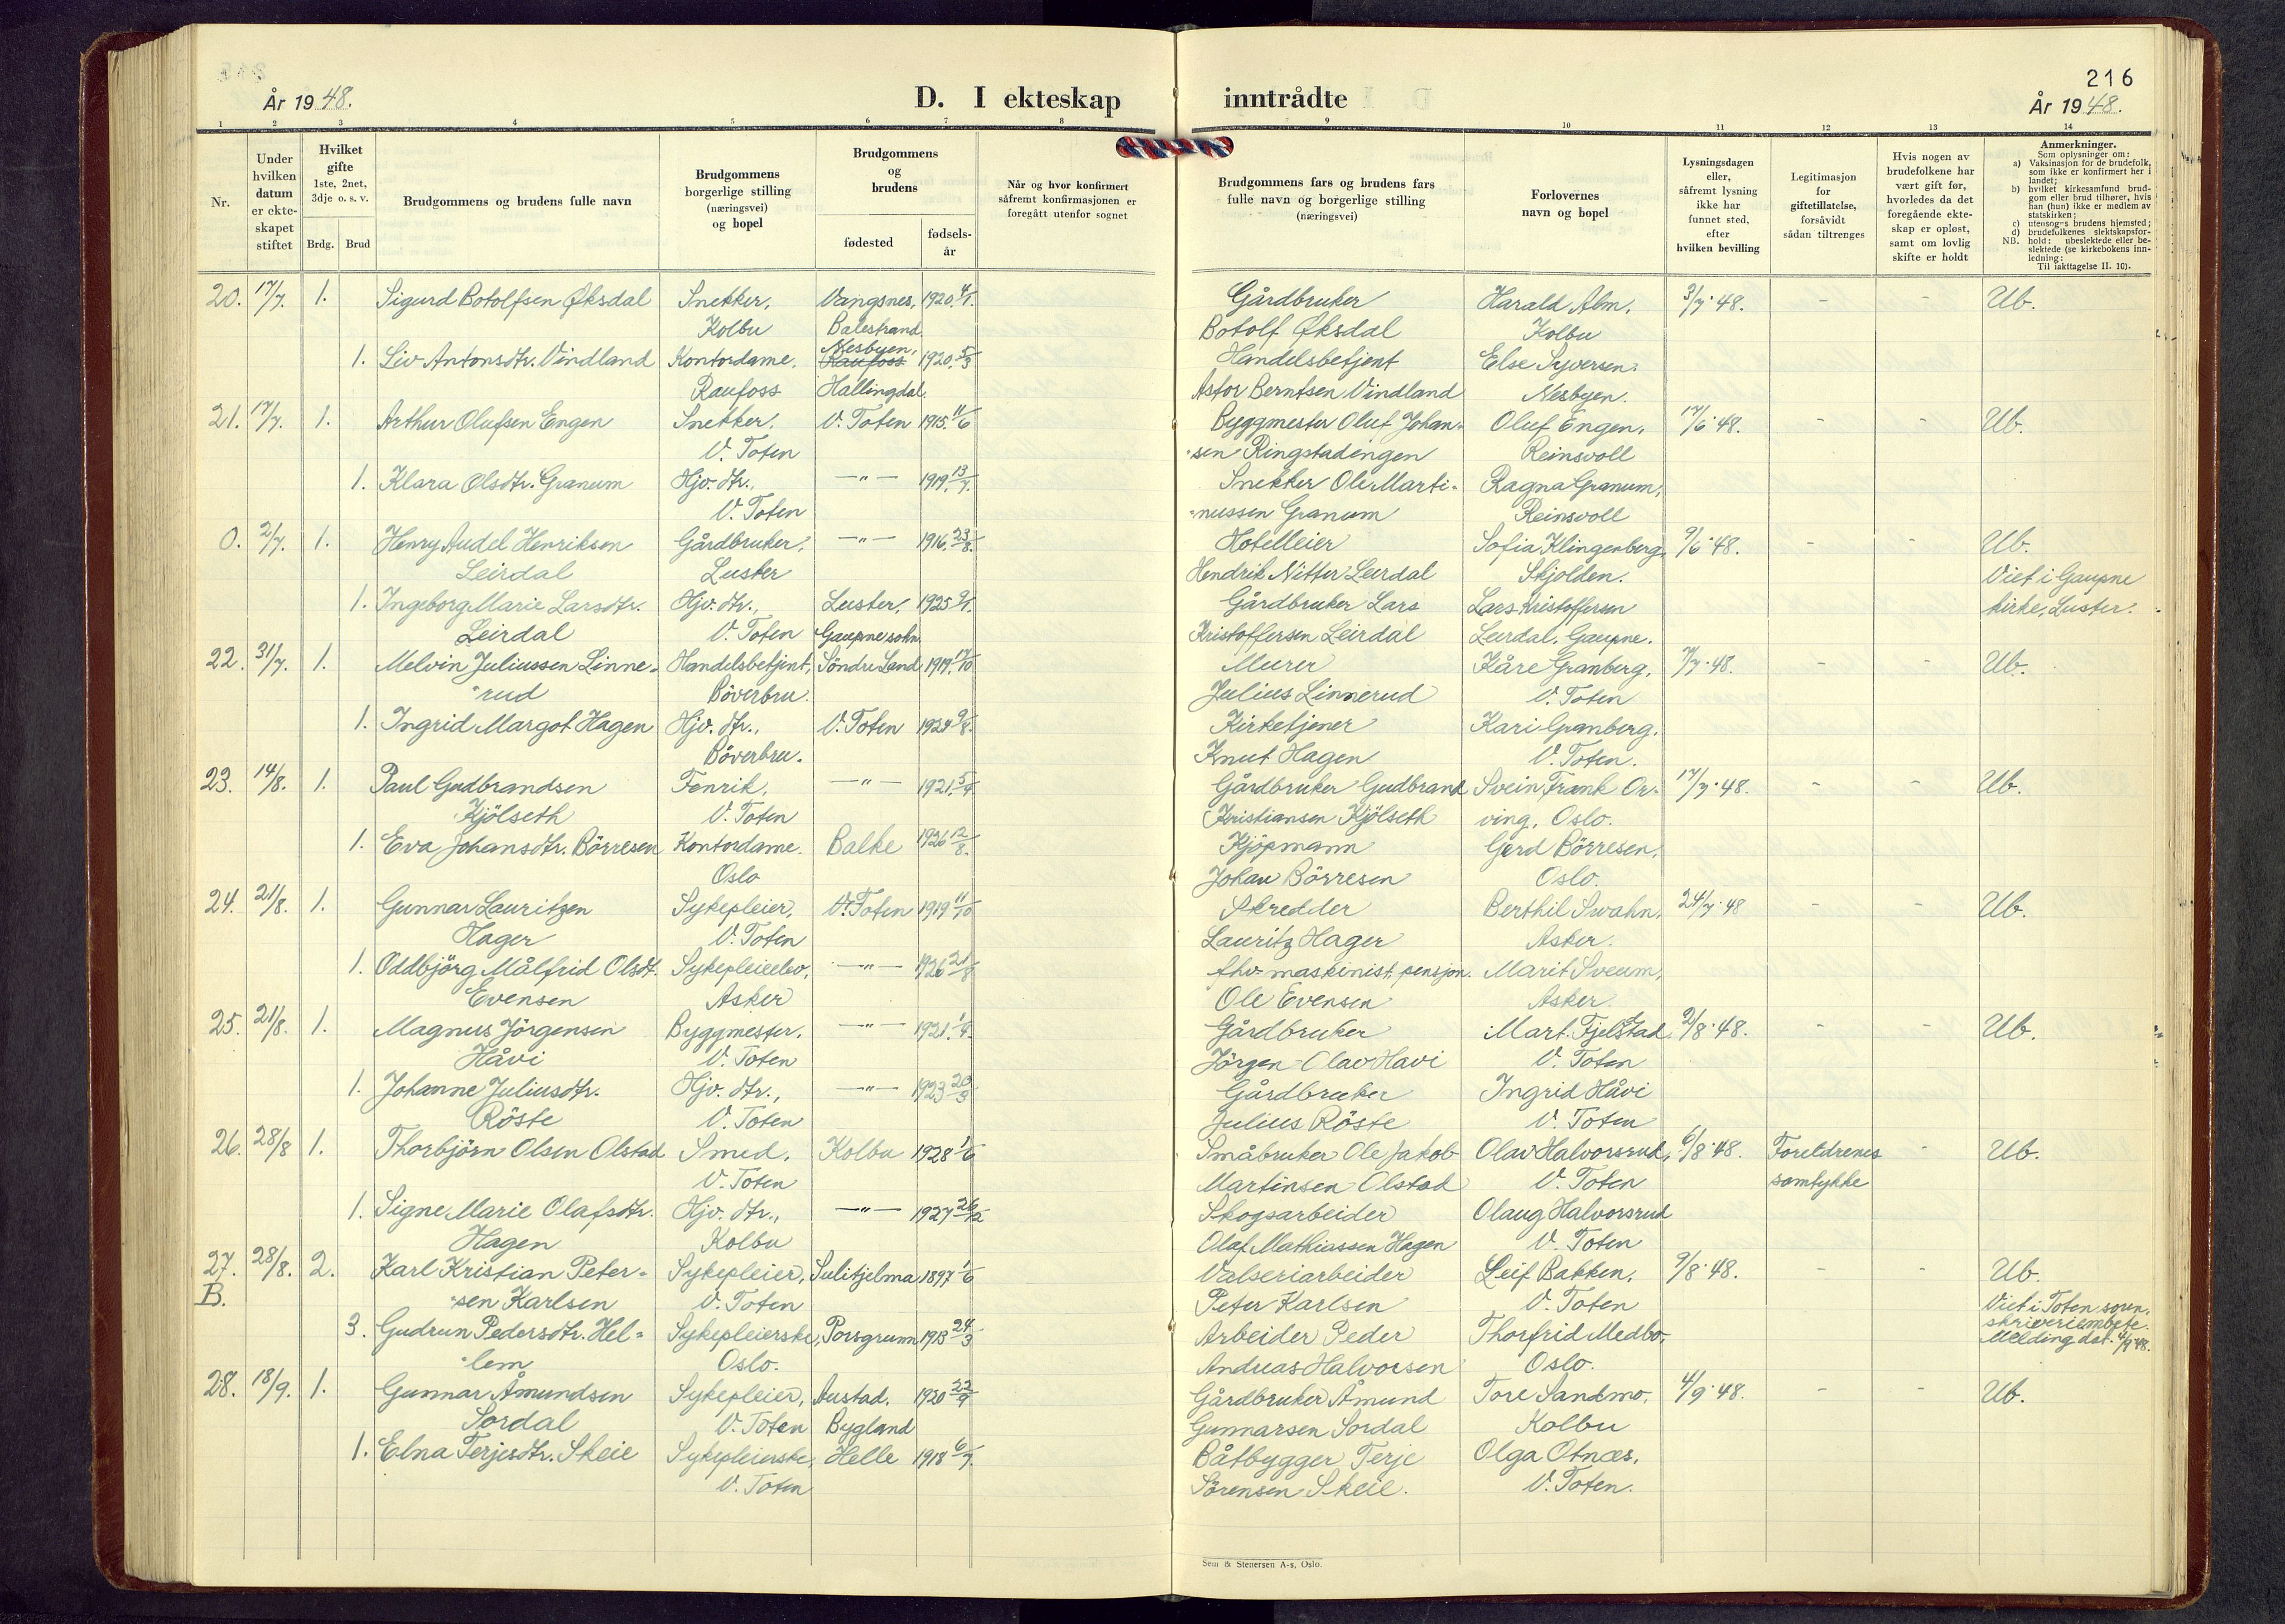 216
År 1948.
D. I ekteskap
inntrådte
År 1948.
1 2 3 4 5 6 7 8 9 10 11 12 13 14
Nr.
Under hvilken datum er ekte-skapet stiftet
Hvilket gifte 1ste, 2net, 3dje o. s. v.
Brdg. Brud
Brudgommens og brudens fulle navn
Brudgommens borgerlige stilling (næringsvei) og bopel
Brudgommens og brudens
fødested
fødsels-år
Når og hvor konfirmert såfremt konfirmasjonen er foregått utenfor sognet
Brudgommens fars og brudens fars fulle navn og borgerlige stilling (næringsvei)
Forlovernes navn og bopel
Lysningsdagen eller, såfremt lysning ikke har funnet sted, efter hvilken bevilling
Legitimasjon for giftetillatelse, forsåvidt sådan tiltrenges
Hvis nogen av brudefolkene har vært gift før, hvorledes da det foregående ekte-skap er opløst, samt om lovlig skifte er holdt
Anmerkninger.
Som oplysninger om:
a) Vaksinasjon for de brudefolk, som ikke er konfirmert her i landet;
b) hvilket kirkesamfund brud-gom eller brud tilhører, hvis han (hun) ikke er medlem av statskirken;
c) utensogns brudens hjemsted;
d) brudefolkenes slektskapsfor-hold: ubeslektede eller be-slektede (se kirkebokens inn-ledning:
NB.
Til iakttagelse II. 10).
20. 17/7. 1. Sigurd Botolfsen Øksdal Snekker, Vangsnes, 1920. 4/1. Gårdbruker Harald Alm, 3/7·48. - - Ub.
Kolbu Balestrand Botolf Øksdal Kolbu
1. Liv Antonsdtr. Vindland Kontordame, Nesbyen, Raufoss 1920. 5/3 Handelsbetjent Else Syversen,
Raufoss Hallingdal. Astor Berntsen Vindland Nesbyen.
21. 17/7. 1. Arthur Olufsen Engen Snekker, V. Toten 1915. 11/6 Byggmester Oluf Johan- Oluf Engen, 17/6·48. - - Ub.
V. Toten sen Ringstadengen Reinsvoll
1. Klara Olsdtr. Granum Hjv. dtr., —"— 1919. 13/7. Snekker Ole Marti- Ragna Granum,
V. Toten nussen Granum Reinsvoll
0. 2/7. 1. Henry Audel Henriksen Gårdbruker, —"— 1916. 23/8. Hotelleier Sofia Klingenberg, 9/6·48. - - Ub.
Leirdal Luster Hendrik Nitter Leirdal Skjolden. Viet i Gaupne
1. Ingeborg Marie Larsdtr. Hjv. dtr., Luster, 1925 9/1. Gårdbruker Lars Lars Kristoffersen kirke, Luster.
Leirdal V. Toten Gaupne sokn. Kristoffersen Leirdal Leirdal, Gaupne.
22. 31/7. 1. Melvin Juliussen Linne- Handelsbetjent, Söndre Land 1919. 17/10 Murer Kåre Granberg, 7/7·48. - - Ub.
rud Böverbru. Julius Linnerud V. Toten
1. Ingrid Margot Hagen Hjv. dtr., V. Toten 1924 9/8. Kirketjener Kari Granberg,
Böverbru. Knut Hagen V. Toten.
23. 14/8. 1. Paul Gudbrandsen Fenrik, —"— 1921. 5/4. Gårdbruker Gudbrand Svein Frank Or- 17/7·48. - - Ub.
Kjölseth V. Toten Kristiansen Kjölseth ving, Oslo.
1. Eva Johansdtr. Börresen Kontordame. Balke 1926 12/8. Kjöpmann Gerd Börresen,
Oslo Johan Börresen Oslo.
24. 21/8. 1. Gunnar Lauritzen Sykepleier, V. Toten 1919 11/10 Skredder Berthil Swahn, 24/7·48 - - Ub.
Hager V. Toten Lauritz Hager Asker.
1. Oddbjörg Målfrid Olsdt. Sykepleieelev, —"— 1926 21/8 fhv. maskinist, pensjon. Marit Sveum,
Evensen Asker Ole Evensen Asker.
25. 21/8. 1. Magnus Jörgensen Byggmester, —"— 1921. 1/4. Gårdbruker Mart. Fjelstad, 2/8·48. - - Ub.
Håvi V. Toten Jörgen Olav Håvi V. Toten
1. Johanne Juliusdtr. Hjv. dtr., —"— 1923 20/3 Gårdbruker Ingrid Håvi
Röste V. Toten Julius Röste V. Toten
26. 28/8 1. Thorbjörn Olsen Olstad Smed, Kolbu 1928 1/6 Småbruker Ole Jakob Olav Halvorsrud, 6/8·48. Foreldrenes - Ub.
V. Toten Martinsen Olstad V. Toten samtykke
1. Signe Marie Olafsdtr. Hjv. dtr., —"— 1927 26/12 Skogsarbeider Olaug Halvorsrud
Hagen Kolbu Olaf Mathiassen Hagen V. Toten
27. 28/8. 2. Karl Kristian Peter- Sykepleier, Sulitjelma 1897 1/6 Valseriarbeider Leif Bakken, 9/8·48. - - Ub.
B. sen Karlsen V. Toten Peter Karlsen V. Toten Viet i Toten soren-
3. Gudrun Pedersdtr. Hel- Sykepleierske, Porsgrunn 1913 24/3 Arbeider Peder Thorfrid Medbo, skriverembete.
lem Oslo. Andreas Halvorsen Oslo. Melding dat. 4/9·48.
28. 18/9. 1. Gunnar Åmundsen Sykepleier, Austad, 1920 22/9 Gårdbruker Åmund Tore Sandmo, 4/9·48. - - Ub.
Sordal V. Toten Bygland Gunnarsen Sordal Kolbu
1. Elna Terjesdtr. Skeie Sykepleierske, Helle 1918 6/7. Båtbygger Terje Olga Otnæs,
V. Toten Sörensen Skeie. V. Toten.
Sem & Stenersen A-s, Oslo.